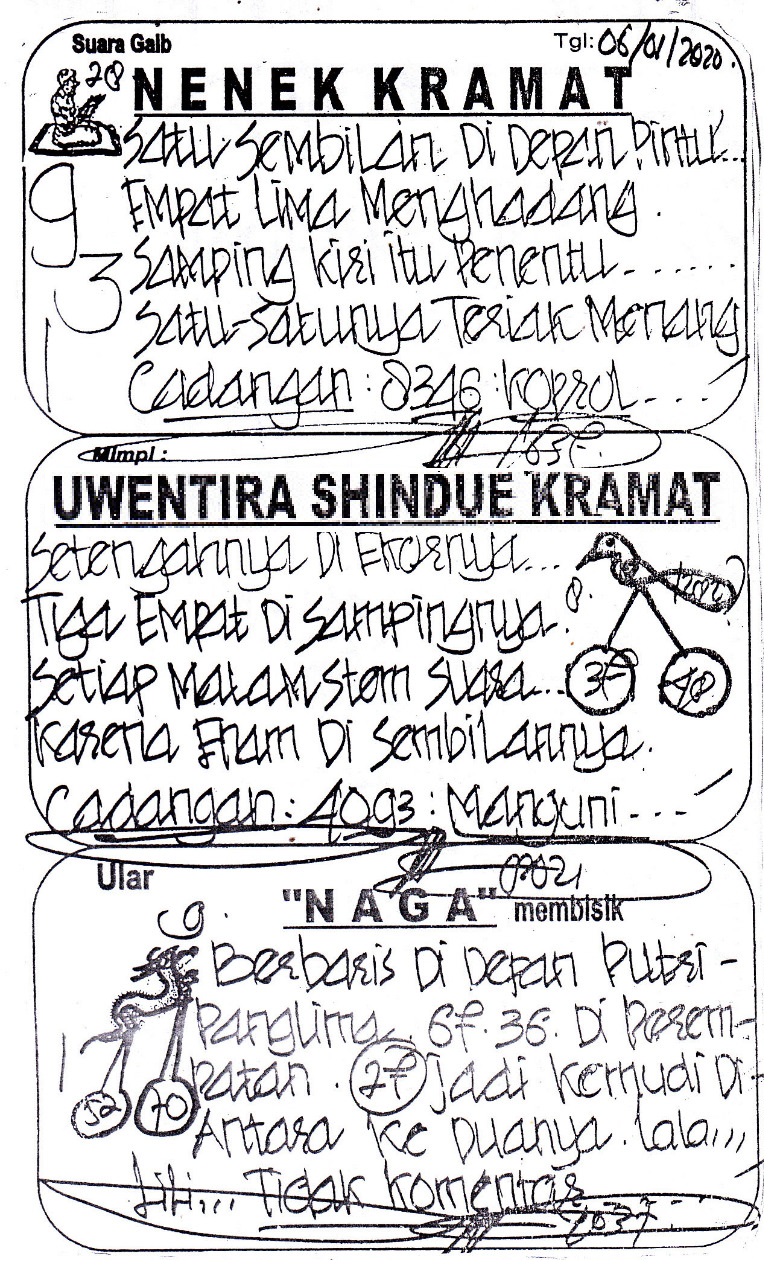 Suara Gaib
Tgl: 06/01/2020.
28
NENEK KRAMAT
Satu Sembilan Di Depan Pintu...
9
Empat Lima Menghadang.
3
Samping kiri itu Penentu.......
1
Satu-satunya Teriak Menang
Cadangan: 8346: Koprol...
Mimpi:
UWENTIRA SHINDUE KRAMAT
Setengahnya Di Ekornya...
Tiga Empat Di Sampingnya.
8.
Setiap Malam Stom Suara...
37 48
Karena Enam Di Sembilannya.
Cadangan: 4093: Manguni...
Ular
"NAGA" membisik
9.
Berbaris Di Depan Putri-
Panglima. 67.36. Di Perem-
1
patan. 27 jadi Kemudi Di-
52 70
Antara Ke Duanya. Lala,,,
Lili,,, Tidak Komentar